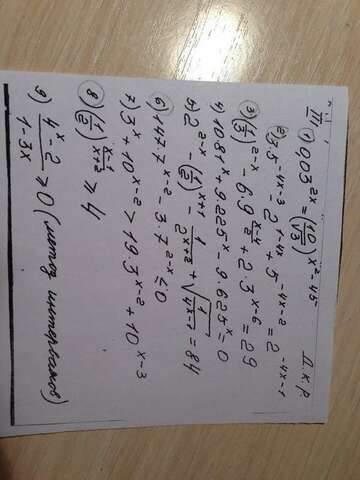 Д.К.Р.
III ① 0,03^{2x} = (10/3)^{x²-45}
2) 3·5^{-4x-3} - 2^{1-4x} + 5^{-4x-2} = 2^{-4x-1}
③ (1/3)^{2-x} - 6·9^{(x-4)/2} + 2·3^{x-6} = 29
4) 10·81^x + 9·225^x - 9·625^x = 0
5) 2^{2-x} - (1/2)^{x+1} - 1/2^{x+2} + √(1/4^{x-7}) = 84
⑥ 147·7^{x-2} - 3·7^{2-x} ≤ 0
7) 3^x + 10^{x-2} > 19·3^{x-2} + 10^{x-3}
⑧ (1/2)^{(x-1)/(x+2)} ≥ 4
9) (4^x-2)/(1-3x) ≥ 0 (метод интервалов)